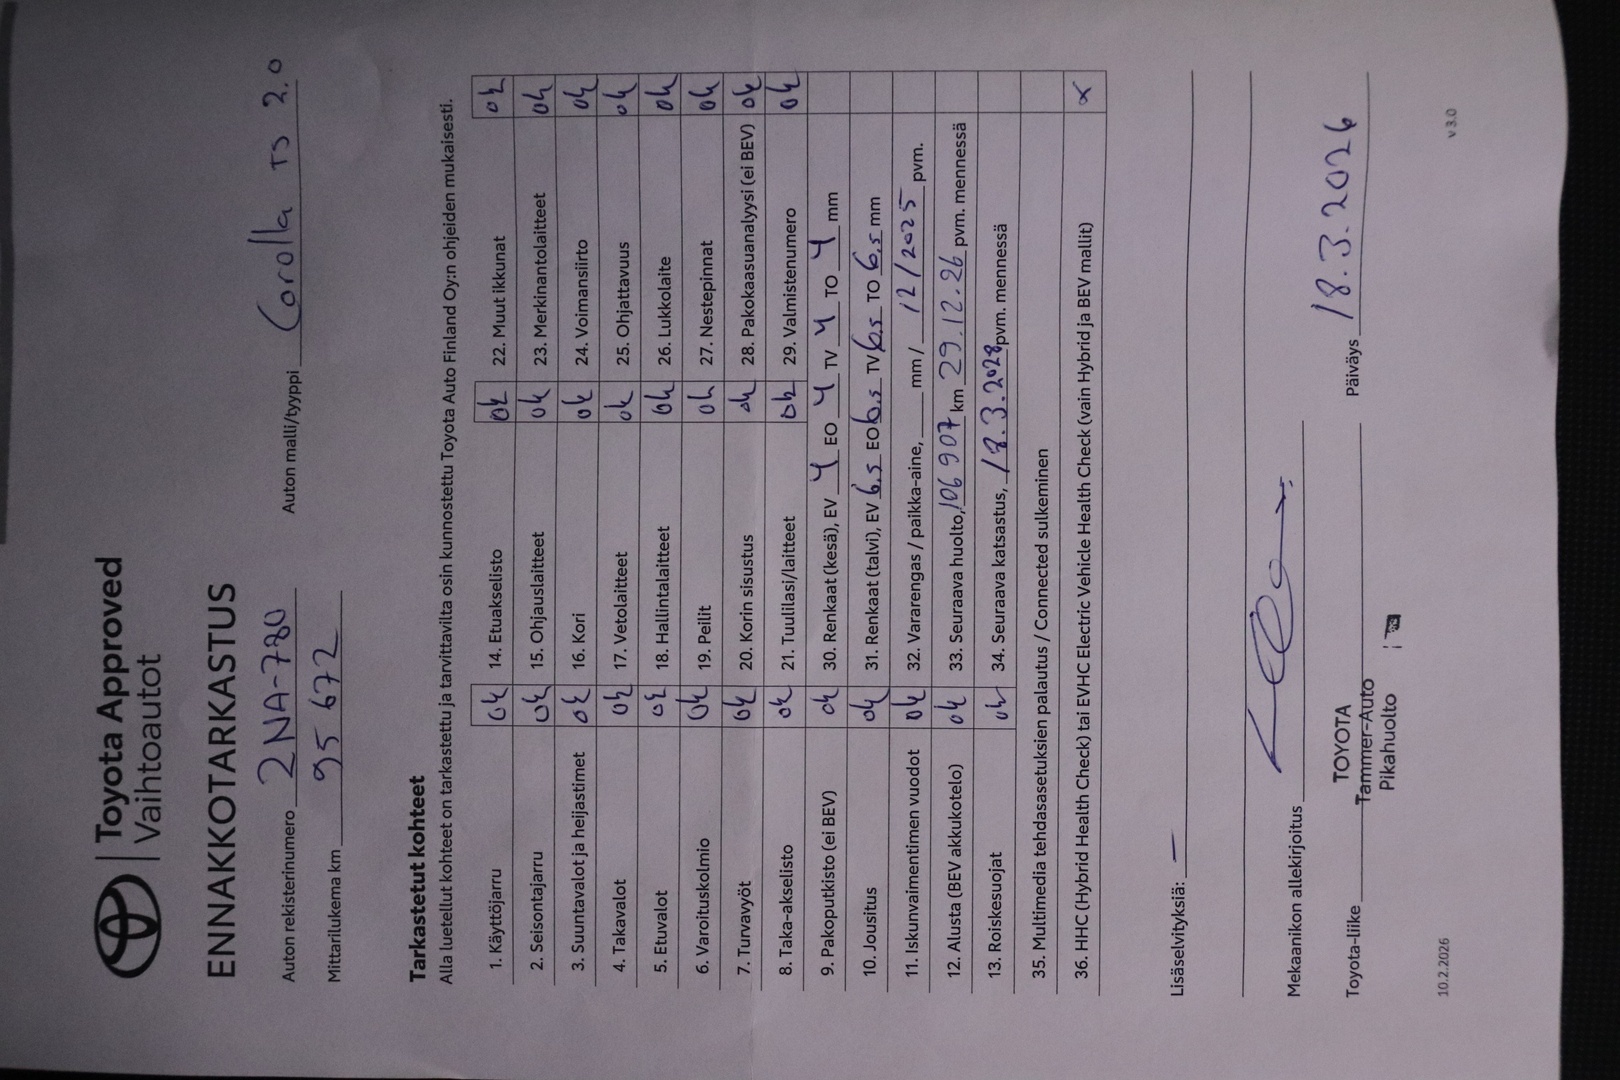 Toyota Approved
Vaihtoautot
ENNAKKOTARKASTUS
Auton rekisterinumero 2NA-780 Auton malli/tyyppi Corolla TS 2.0
Mittarilukema km 95 672
Tarkastetut kohteet
Alla luetellut kohteet on tarkastettu ja tarvittavilta osin kunnostettu Toyota Auto Finland Oy:n ohjeiden mukaisesti.
1. Käyttöjarru ok 14. Etuakselisto ok 22. Muut ikkunat ok
2. Seisontajarru ok 15. Ohjauslaitteet ok 23. Merkinantolaitteet ok
3. Suuntavalot ja heijastimet ok 16. Kori ok 24. Voimansiirto ok
4. Takavalot ok 17. Vetolaitteet ok 25. Ohjattavuus ok
5. Etuvalot ok 18. Hallintalaitteet ok 26. Lukkolaite ok
6. Varoituskolmio ok 19. Peilit ok 27. Nestepinnat ok
7. Turvavyöt ok 20. Korin sisustus ok 28. Pakokaasuanalyysi (ei BEV) ok
8. Taka-akselisto ok 21. Tuulilasi/laitteet ok 29. Valmistenumero ok
9. Pakoputkisto (ei BEV) ok 30. Renkaat (kesä), EV 4 EO 4 TV 4 TO 4 mm
10. Jousitus ok 31. Renkaat (talvi), EV 6.5 EO 6.5 TV 6.5 TO 6.5 mm
11. Iskunvaimentimen vuodot ok 32. Vararengas / paikka-aine, mm / 12/2025 pvm.
12. Alusta (BEV akkukotelo) ok 33. Seuraava huolto, 106 907 km 29.12.26 pvm. mennessä
13. Roiskesuojat ok 34. Seuraava katsastus, 18.3.2028 pvm. mennessä
35. Multimedia tehdasasetuksien palautus / Connected sulkeminen
36. HHC (Hybrid Health Check) tai EVHC Electric Vehicle Health Check (vain Hybrid ja BEV mallit) x
Lisäselvityksiä: –
Mekaanikon allekirjoitus
Toyota-liike TOYOTA Päiväys 18.3.2026
Tammer-Auto
Pikahuolto
10.2.2026 v 3.0